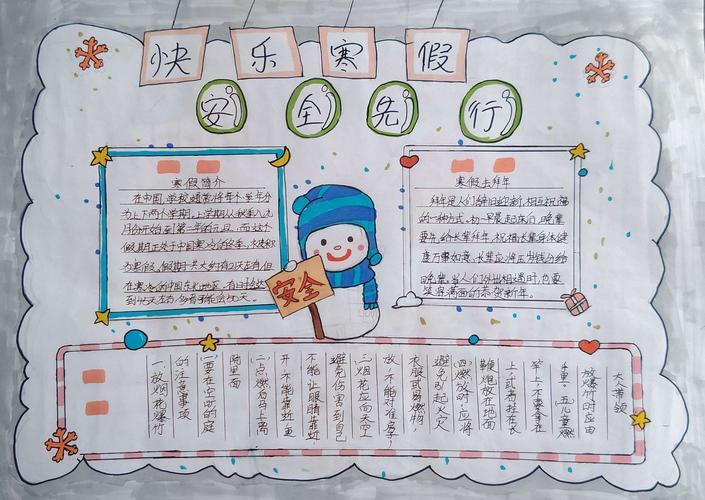 快乐寒假
安全先行
寒假简介
在中国,学校通常将每个学年分
为上下两个学期,上学期从秋季八九
月份开始到第一年的元旦,而这个
假期正处于中国寒冷的冬季,
为寒假,假期
到
寒假去拜年
拜年是人们辞旧迎新,相互祝福
的一种方式。初一早晨起床后,晚辈
要先给长辈拜年,祝福长辈身体健
康万事如意,长辈应将压岁钱分给
晚辈。当人们外出相遇时,也要
笑容满面的恭贺新年。
安全
一放烟花爆竹
的注意事项
(一)要在空旷的庭
院里面
(二)点燃后马上离
开,不能靠近,重
不能让眼睛靠近,
避免伤害到自己
(三)烟花应向天空
放,不能对准房子、
衣服或易燃物,
避免引起火灾
(四)燃放时应将
鞭炮放在地面
上,或者挂在长
竿上,不要拿在
手里。(五)儿童燃
放爆竹时应由
大人带领